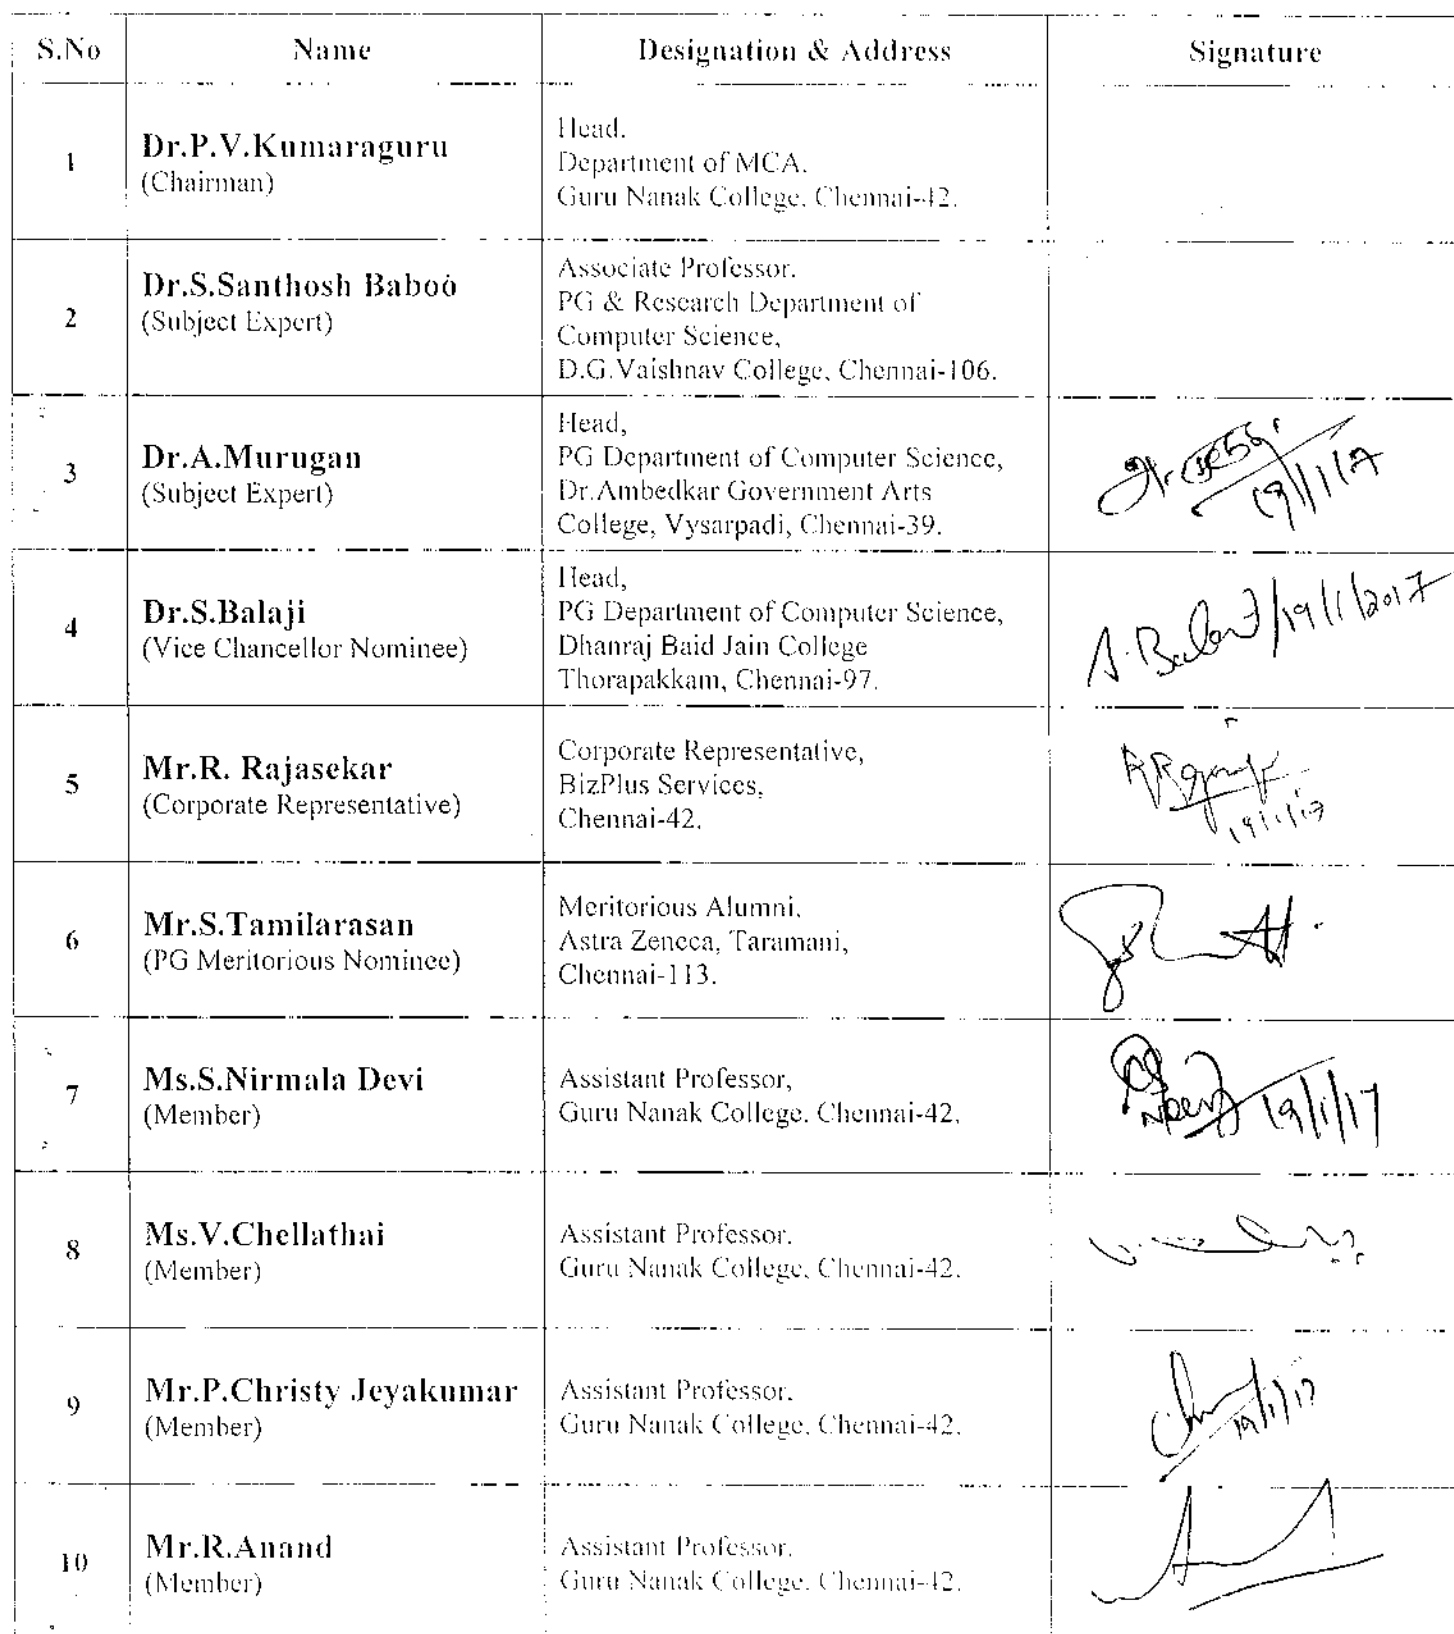 S.No Name Designation & Address Signature
1
Dr.P.V.Kumaraguru
(Chairman)
Head.
Department of MCA.
Guru Nanak College, Chennai-42.
2
Dr.S.Santhosh Baboo
(Subject Expert)
Associate Professor.
PG & Research Department of
Computer Science,
D.G.Vaishnav College, Chennai-106.
3
Dr.A.Murugan
(Subject Expert)
Head,
PG Department of Computer Science,
Dr.Ambedkar Government Arts
College, Vysarpadi, Chennai-39.
19/1/17
4
Dr.S.Balaji
(Vice Chancellor Nominee)
Head,
PG Department of Computer Science,
Dhanraj Baid Jain College
Thorapakkam, Chennai-97.
19/1/2017
5
Mr.R. Rajasekar
(Corporate Representative)
Corporate Representative,
BizPlus Services,
Chennai-42.
19/1/17
6
Mr.S.Tamilarasan
(PG Meritorious Nominee)
Meritorious Alumni,
Astra Zeneca, Taramani,
Chennai-113.
7
Ms.S.Nirmala Devi
(Member)
Assistant Professor,
Guru Nanak College. Chennai-42.
19/1/17
8
Ms.V.Chellathai
(Member)
Assistant Professor.
Guru Nanak College, Chennai-42.
9
Mr.P.Christy Jeyakumar
(Member)
Assistant Professor.
Guru Nanak College, Chennai-42.
19/1/17
10
Mr.R.Anand
(Member)
Assistant Professor.
Guru Nanak College. Chennai-42.